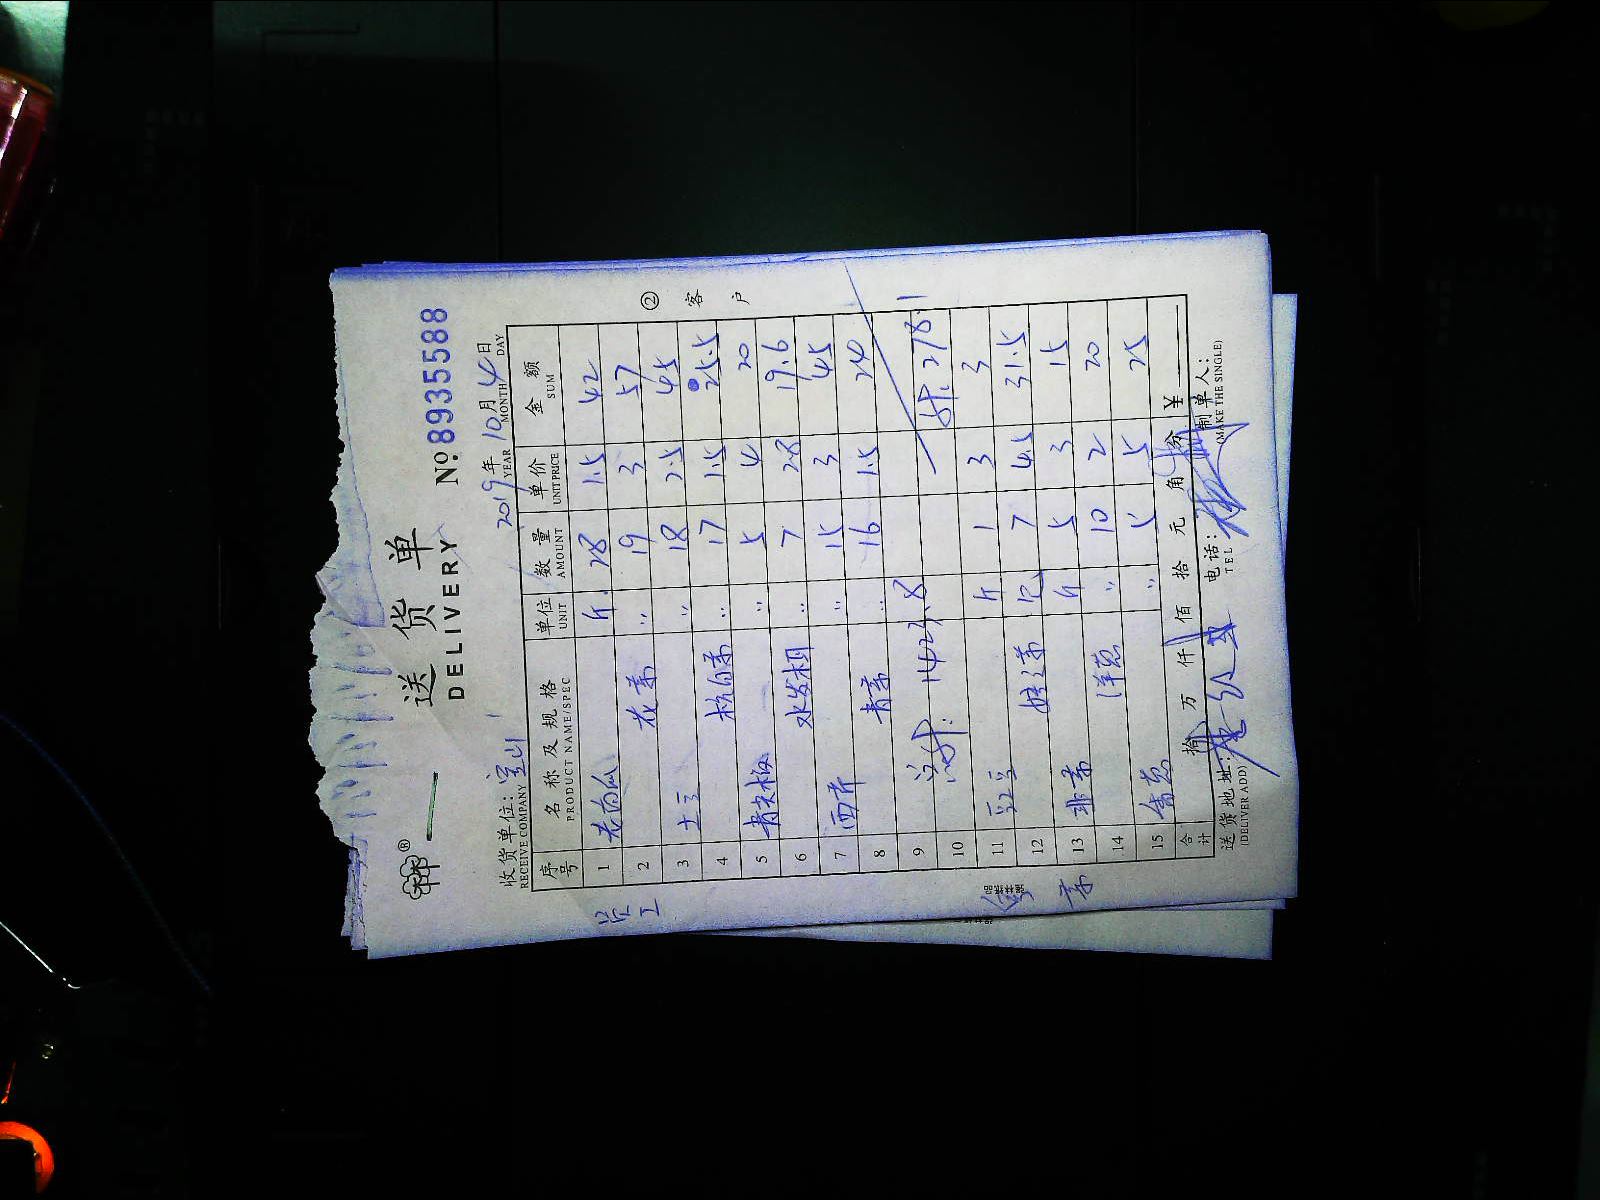 送货单
DELIVERY
№ 8935588
收货单位：宝山
RECEIVE COMPANY
2019年 10月 4日
YEAR MONTH DAY
② 客户
序号 名称及规格 单位 数量 单价 金额
PRODUCT NAME/SPEC UNIT AMOUNT UNIT PRICE SUM
1 老南瓜 斤 28 1.5 42
2 花菜 〃 19 3 57
3 土豆 〃 18 2.5 45
4 〃 17 1.5 25.5
5 青尖椒 〃 5 4 20
6 水发 〃 7 2.8 19.6
7 西芹 〃 15 3 45
8 青菜 〃 16 1.5 24
9 1423.8 278.1
10 斤 1 3 3
11 豇豆 7 4.5 31.5
12 娃娃菜 斤 5 3 15
13 韭菜 〃 10 2 20
14 洋葱 〃 5 5 25
15 香葱
合计 拾 万 仟 佰 拾 元 角 份 ¥
送货地址：
(DELIVER ADD)
电话：
TEL
制单人：
(MAKE THE SINGLE)